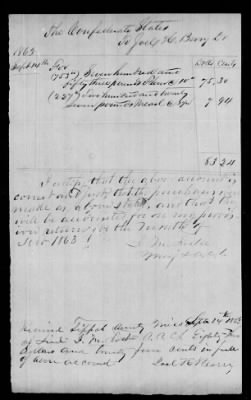 The Confederate States
To Joel H. Berry Dr
1863 Dolls Cents
Sept 14th For
(753 lb) Seven hundred and
Fifty three pounds 10c 75,30
(227) Two hundred and twenty
Seven pounds Meal 7 94
83 24
I certify that the above account is
correct and just, that the purchase was
made as above stated, and that they
will be accounted for on my
return for the Month of
Sept 1863
Maj &
Received Tippah County Miss Sept 14th 1863
of A.A.C.S. Eighty Three
Dollars and twenty four cents in full
of above account
Joel H Berry